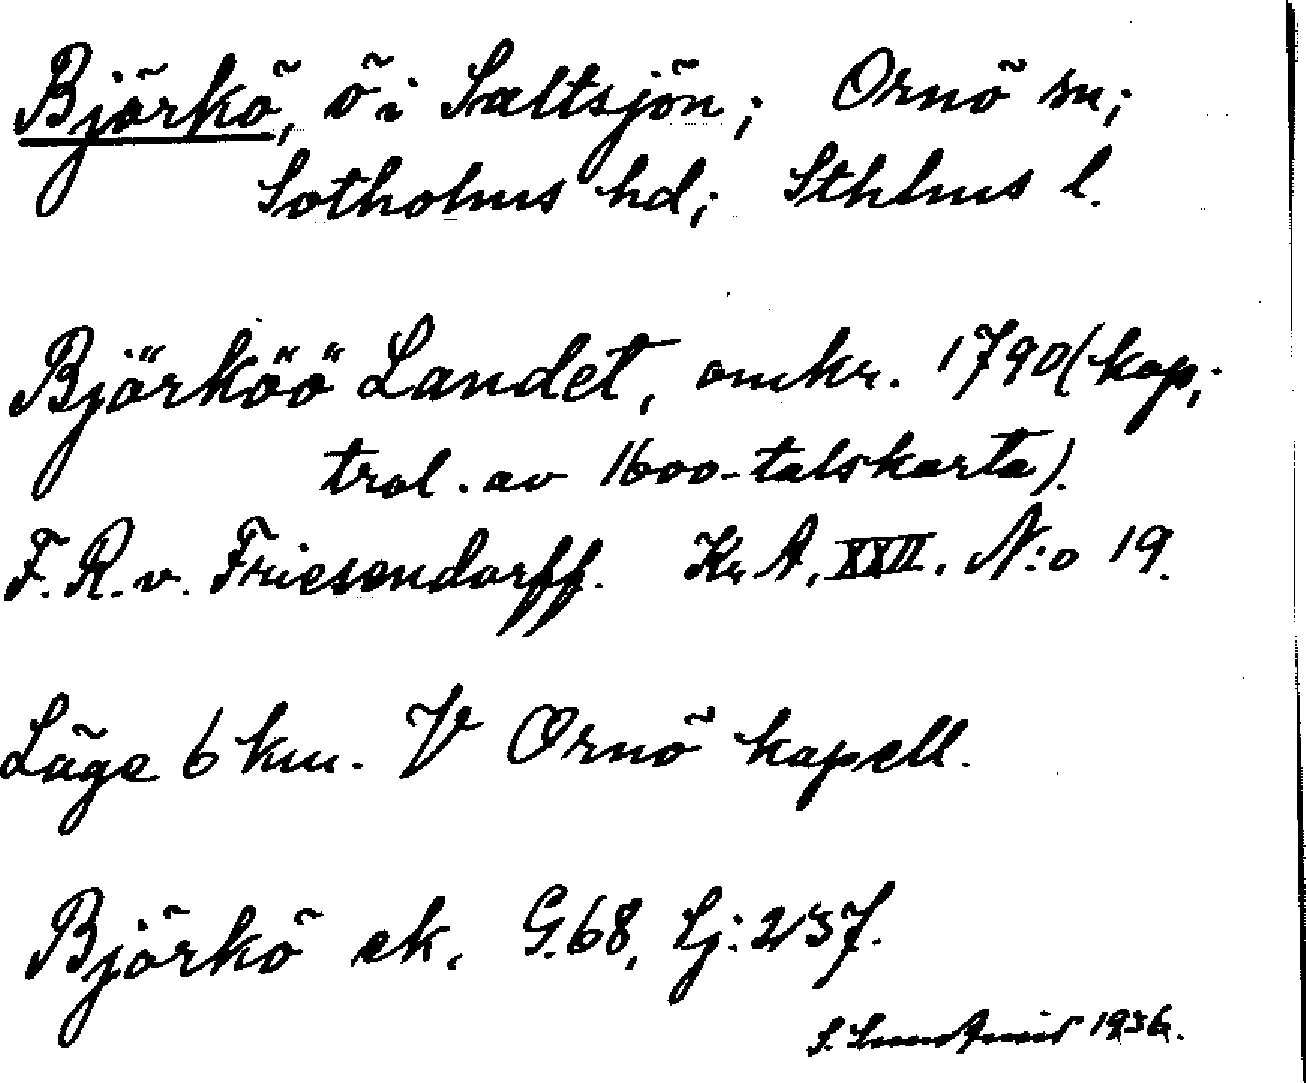 Björkö, ö i Saltsjön; Ornö sn;
Sotholms hd; Sthlms l.
Björköö Landet, omkr. 1790 (kop,
trol. av 1600-talskarta).
F. R. v. Friesendorff. Kr A. XXII. N:o 19.
Läge 6 km. V Ornö kapell.
Björkö ek. G.68, Lj: 237.
S. 1936.